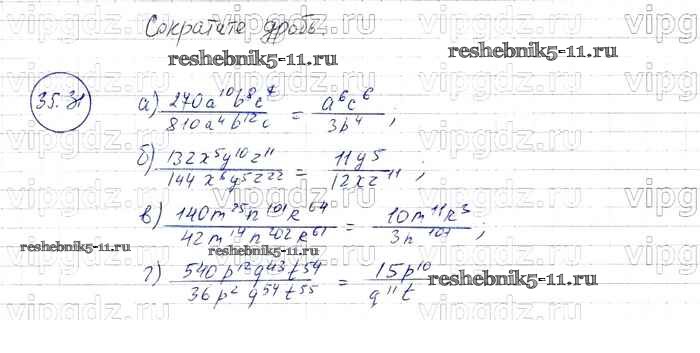 Сократите дробь
reshebnik5-11.ru
reshebnik5-11.ru
35.31
а) 270a¹⁰b⁸c⁷ / 810a⁴b¹²c = a⁶c⁶ / 3b⁴ ;
б) 132x⁵y¹⁰z¹¹ / 144x⁶y⁵z²² = 11y⁵ / 12xz¹¹ ;
в) 140m²⁵n¹⁰¹k⁶⁴ / 42m¹⁴n²⁰²k⁶¹ = 10m¹¹k³ / 3n¹⁰¹ ;
reshebnik5-11.ru
reshebnik5-11.ru
г) 540p¹²q⁴³t⁵⁴ / 36p²q⁵⁴t⁵⁵ = 15p¹⁰ / q¹¹t
reshebnik5-11.ru
vipgdz.ru